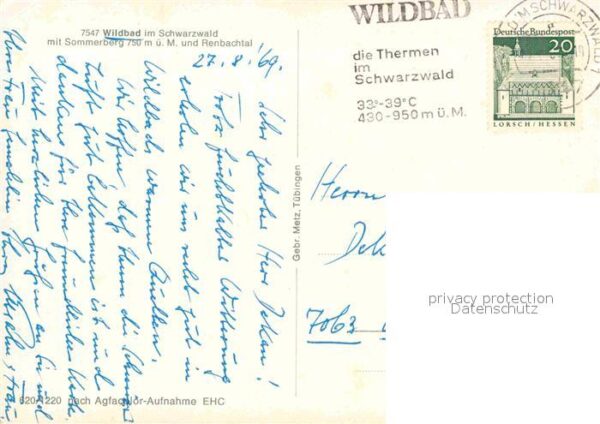 7547 Wildbad im Schwarzwald
mit Sommerberg 750 m ü. M. und Renbachtal
27.8.69.
Sehr geehrter Herr Dekan!
Trotz Witterung
erholen wir uns recht gut in
Wildbads warmen Quellen.
Wir hoffen, daß Ihnen die Schweizer
Luft gut bekommen ist und
danken für Ihre freundliche Karte.
Mit herzlichen Grüßen an Sie und
Ihre Frau Gemahlin Ihre Frau
Gebr. Metz, Tübingen
620/1220 nach Agfacolor-Aufnahme EHC
WILDBAD
die Thermen
im
Schwarzwald
33°-39°C
430-950 m ü. M.
D IM SCHWARZWALD 1
Deutsche Bundespost
20
LORSCH / HESSEN
Herrn
Dek
7063
privacy protection
Datenschutz